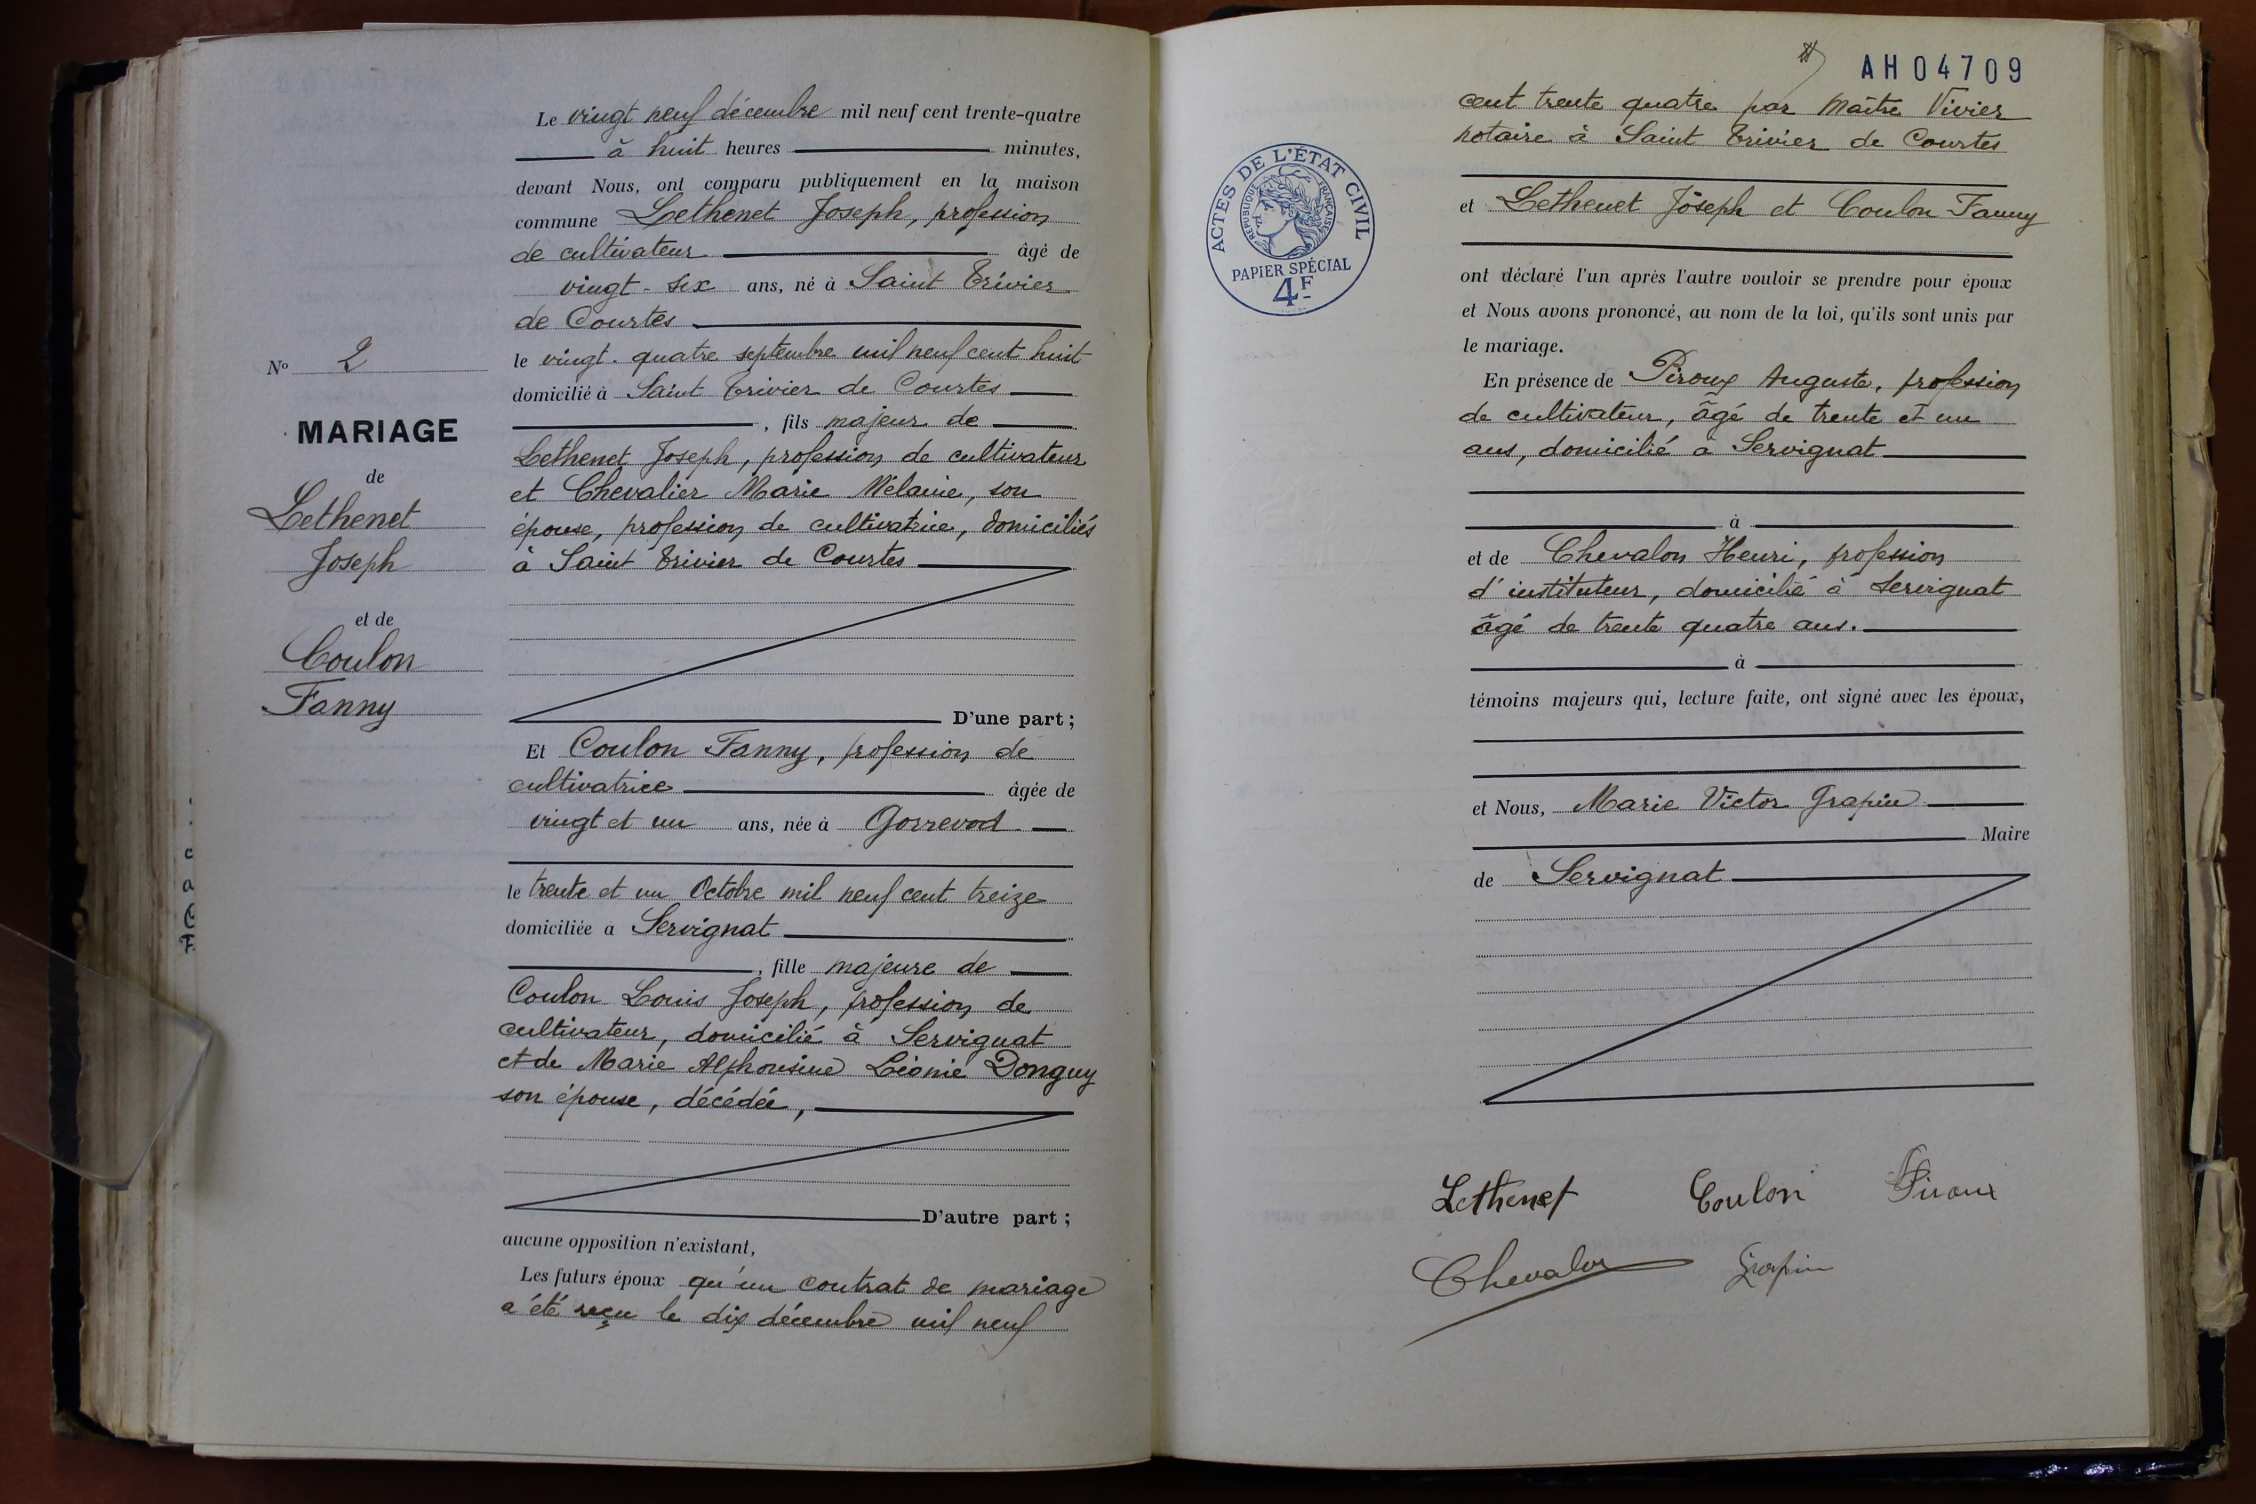 Le vingt neuf décembre mil neuf cent trente-quatre
à huit heures minutes,
devant Nous, ont comparu publiquement en la maison
commune Lethenet Joseph, profession
de cultivateur âgé de
vingt-six ans, né à Saint Trivier
de Courtes
le vingt-quatre septembre mil neuf cent huit
domicilié à Saint Trivier de Courtes
, fils majeur de
Lethenet Joseph, profession de cultivateur
et Chevalier Marie Mélanie, son
épouse, profession de cultivatrice, domiciliés
à Saint Trivier de Courtes
D'une part ;
Nº 2
MARIAGE
de
Lethenet
Joseph
et de
Coulon
Fanny
Et Coulon Fanny, profession de
cultivatrice âgée de
vingt et un ans, née à Gorrevod
le trente et un Octobre mil neuf cent treize
domiciliée a Servignat
, fille majeure de
Coulon Louis Joseph, profession de
cultivateur, domicilié à Servignat
et de Marie Alphonsine Léonie Donguy
son épouse, décédée,
D'autre part ;
aucune opposition n'existant,
Les futurs époux qu'un contrat de mariage
a été reçu le dix décembre mil neuf
AH04709
cent trente quatre par Maître Vivier
notaire à Saint Trivier de Courtes
ACTES DE L'ÉTAT CIVIL
RÉPUBLIQUE FRANÇAISE
PAPIER SPÉCIAL
4F
et Lethenet Joseph et Coulon Fanny
ont déclaré l'un après l'autre vouloir se prendre pour époux
et Nous avons prononcé, au nom de la loi, qu'ils sont unis par
le mariage.
En présence de Piroux Auguste, profession
de cultivateur, âgé de trente et un
ans, domicilié à Servignat
à
et de Chevalon Henri, profession
d'instituteur, domicilié à Servignat
âgé de trente quatre ans.
à
témoins majeurs qui, lecture faite, ont signé avec les époux,
et Nous, Marie Victor Grapin
Maire
de Servignat
Lethenet Coulon Piroux
Chevalon Grapin